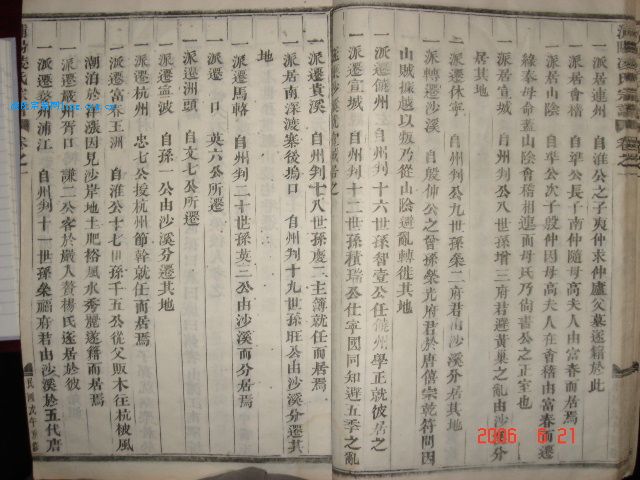 一派居連州　自淮公之子爽仲求仲廬父墓遂籍於此
一派居會稽　自準公長子南仲隨母高夫人由富春而居焉
一派居山陰　自準公次子殷仲因母高夫人在會稽由富春而遷
緣奉母命蓋山陰會稽相連而母氏乃尚書公之正室也
一派居宣城　自州判公八世孫增三府君避黃巢之亂由沙溪分
居其地
一派遷休寧　自州判公九世孫榮二府君由沙溪分居其地
一派轉遷沙溪　自殷仲公之曾孫榮光府君於唐僖宗乾符間因
山賊據越以叛乃從山陰避亂轉徙其地
一派遷儀州　自州判十六世孫智壹公任儀州學正就彼居之
一派遷宣城　自州判十二世孫積瑞公仕寧國同知避五季之亂
一派遷貴溪　自州判十八世孫慶二主簿就任而居焉
一派居南深渡寨後塢口　自州判十九世孫旺公由沙溪分遷其
地
一派遷馬輅　自州判二十世孫英三公由沙溪而分居焉
一派遷　口　英六公所遷
一派遷洲頭　自文七公所遷
一派遷寧波　自孫一公由沙溪分遷其地
一派遷杭州　忠七公授杭州節幹就任而居焉
一派遷富春王洲　自淮公十七世孫千五公從父販木往杭被風
潮泊於洋漲因見沙岸地土肥裕風水秀麗遂籍而居焉
一派遷嚴州胥口　謙二公客於嚴入贅楊氏遂居於彼
一派遷婺州浦江　自州判十一世孫榮福府君由沙溪於五代唐
民國戊午
2006 6 21